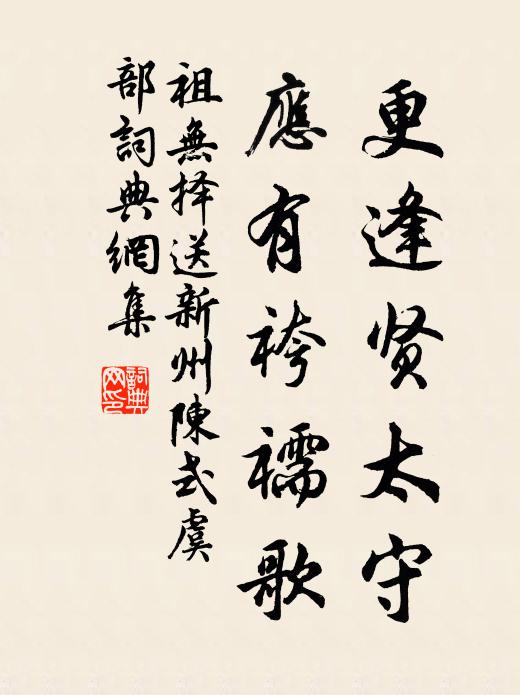 更逢贤太守
應有袴襦歌
祖無择送新州陳式虞
部詞典網集
詞典網印